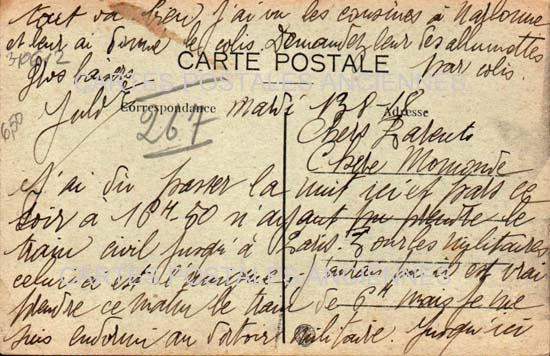 tout va bien j'ai vu les cousines à Narbonne
et leur ai donné le colis. Demandez leur des allumettes
par colis.
Gros baisers
CARTE POSTALE
CARTES POSTALES ANCIENNES
Correspondance
Adresse
267
6,50
mardi 13-8-18
Chers Parents
Chère Momonde
J'ai dû passer la nuit ici et pars ce
soir à 16H-50 n'ayant pu prendre le
train civil jusqu'à Paris. Pour les militaires
celui ci est le unique. J'aurais pu il est vrai
prendre ce matin le train de 6H mais je me
suis endormi au dortoir militaire. Jusqu'ici
CARTES POSTALES ANCIENNES